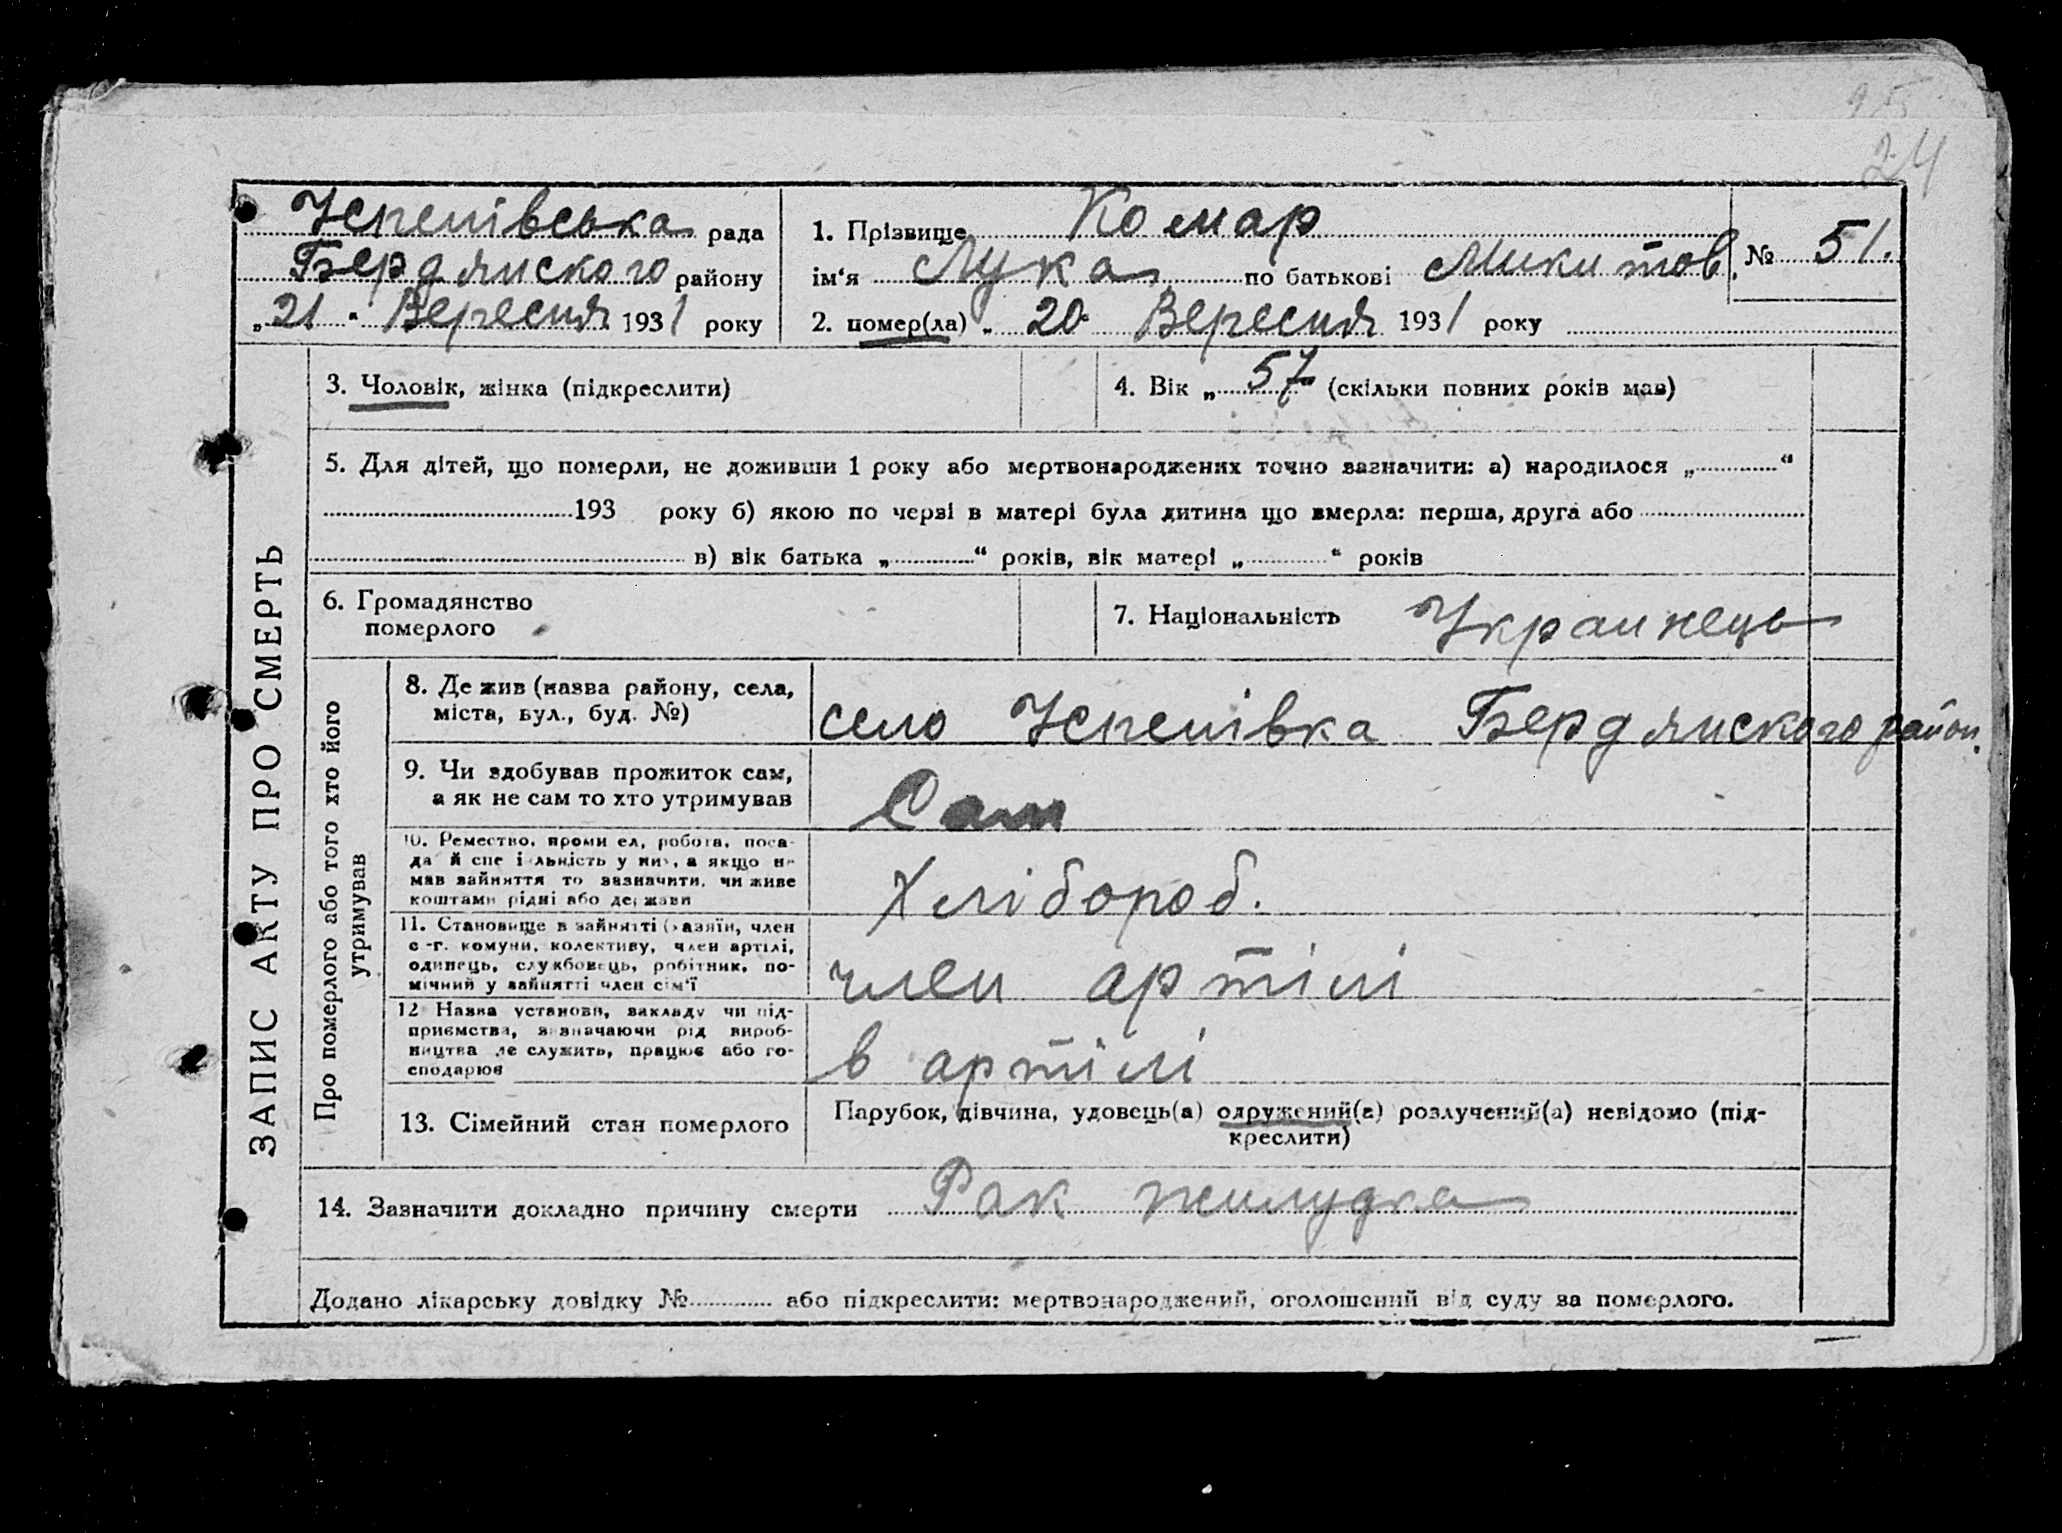 24
Успенівська рада
Бердянского району
„21" Вересня 1931 року
1. Прізвище Комар
ім'я Лука по батькові Микитов.
№ 51.
2. помер(ла) „ 20 Вересня 1931 року
ЗАПИС АКТУ ПРО СМЕРТЬ
3. Чоловік, жінка (підкреслити)
4. Вік „ 57 " (скільки повних років мав)
5. Для дітей, що померли, не доживши 1 року або мертвонароджених точно зазначити: а) народилося „ "
193 року б) якою по черзі в матері була дитина що вмерла: перша, друга або
в) вік батька „ " років, вік матері „ " років
6. Громадянство
померлого
7. Національність Украинець
Про померлого або того хто його
утримував
8. Де жив (назва району, села,
міста, вул., буд. №)
село Успенівка Бердянского район.
9. Чи здобував прожиток сам,
а як не сам то хто утримував
Сам
10. Ремество, промисел, робота, поса-
да й спеціальність у них, а якщо не
мав зайняття то зазначити, чи живе
коштами рідні або держави
Хлібороб.
11. Становище в зайнятті (хазяїн, член
с.-г. комуни, колективу, член артілі,
одинець, службовець, робітник, по-
мічний у зайнятті член сім'ї
член артілі
12 Назва установи, закладу чи під-
приємства, зазначаючи рід вироб-
ництва де служить, працює або го-
сподарює
в артілі
13. Сімейний стан померлого
Парубок, дівчина, удовець(а) одружений(а) розлучений(а) невідомо (під-
креслити)
14. Зазначити докладно причину смерти Рак жилудка
Додано лікарську довідку № або підкреслити: мертвонароджений, оголошений від суду за померлого.